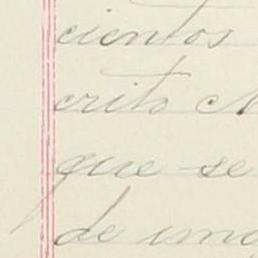 cientos
crito
que se
de